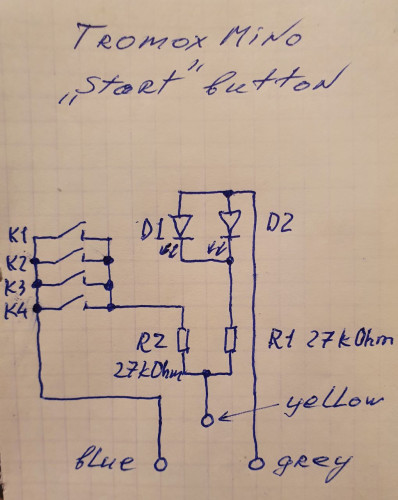 Tromox Mino
„Start" button
D1 D2
K1
K2
K3
K4
R2 R1 27kOhm
27kOhm
yellow
blue grey